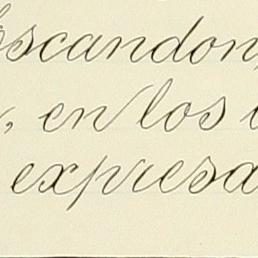 Escandon,
, en los
expresa